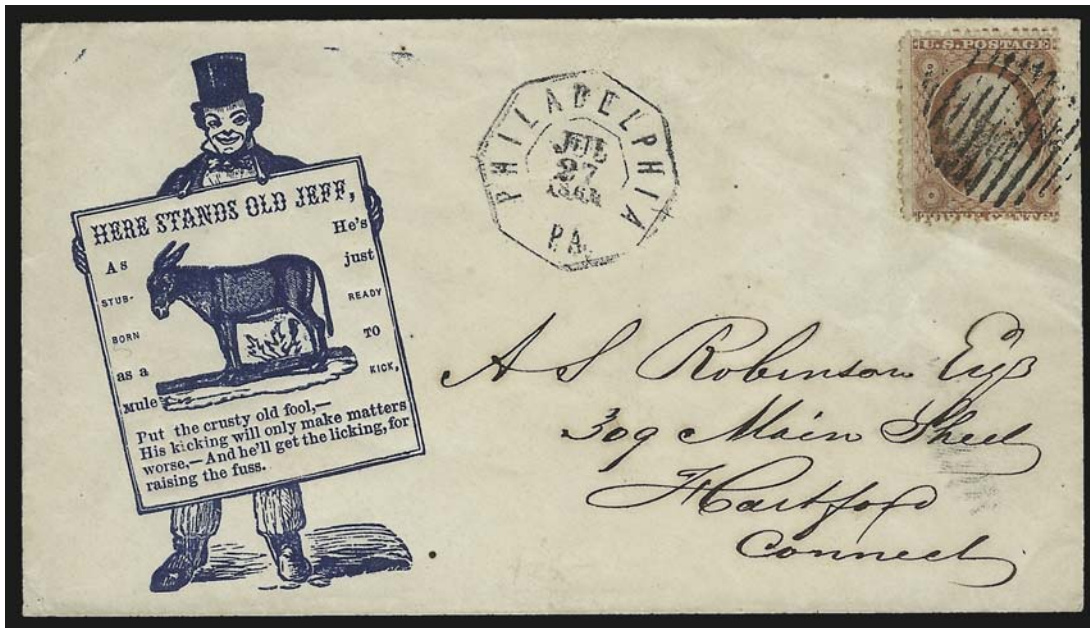 HERE STANDS OLD JEFF,
As
STUB-
BORN
as a
Mule
He's
just
READY
TO
KICK,
Put the crusty old fool,—
His kicking will only make matters
worse,—And he'll get the licking, for
raising the fuss.
PHILADELPHIA
27
PA.
U.S. POSTAGE
THREE CENTS
A S Robinson Esqr
309 Main Street
Hartford
Connect